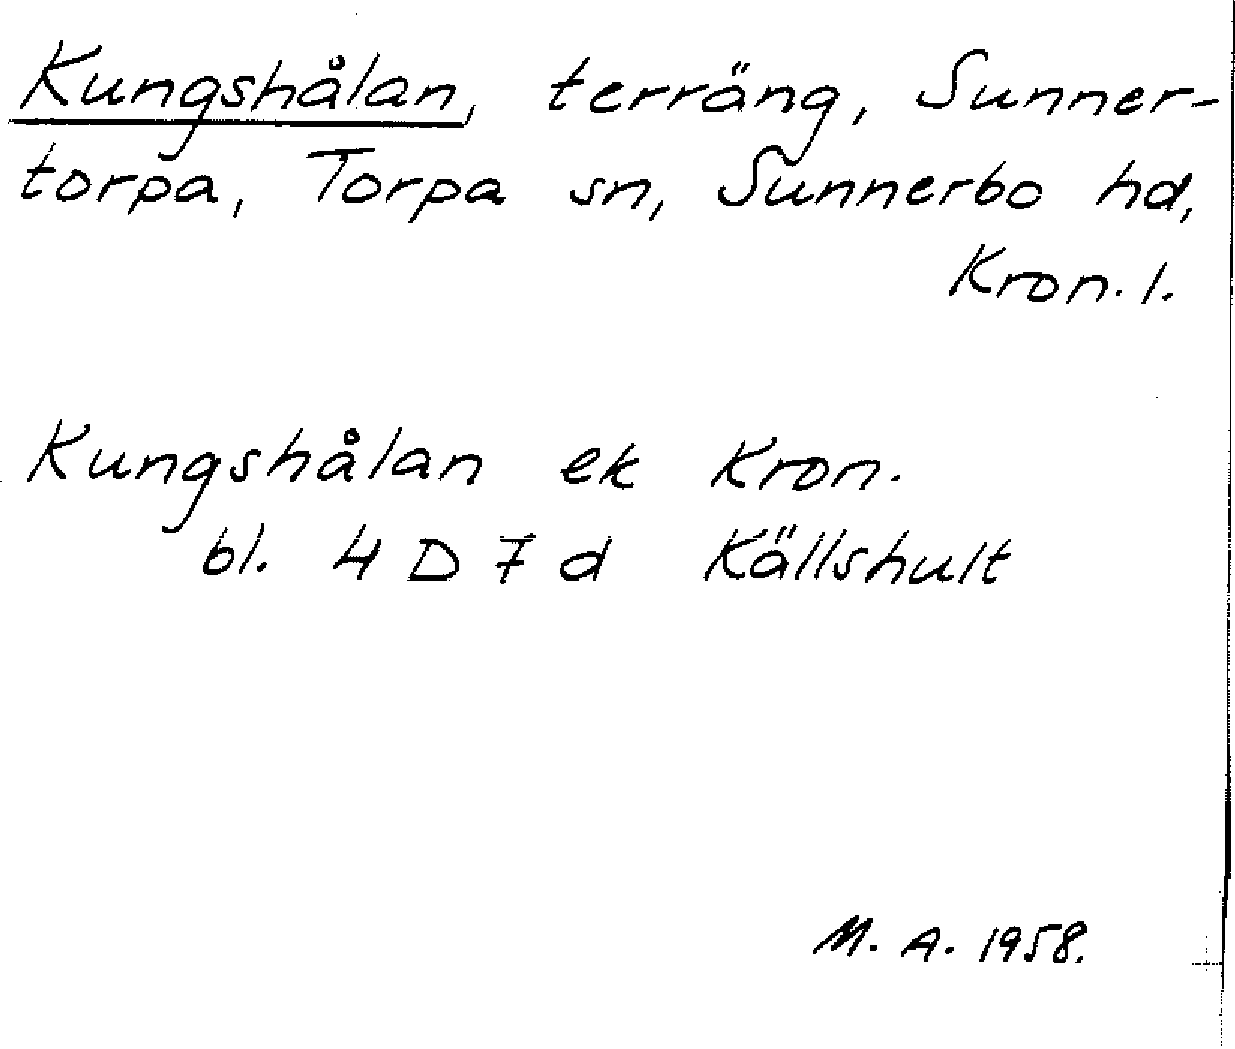 Kungshålan, terräng, Sunner-
torpa, Torpa sn, Sunnerbo hd,
Kron. l.
Kungshålan ek Kron.
bl. 4 D 7 d Källshult
M. A. 1958.